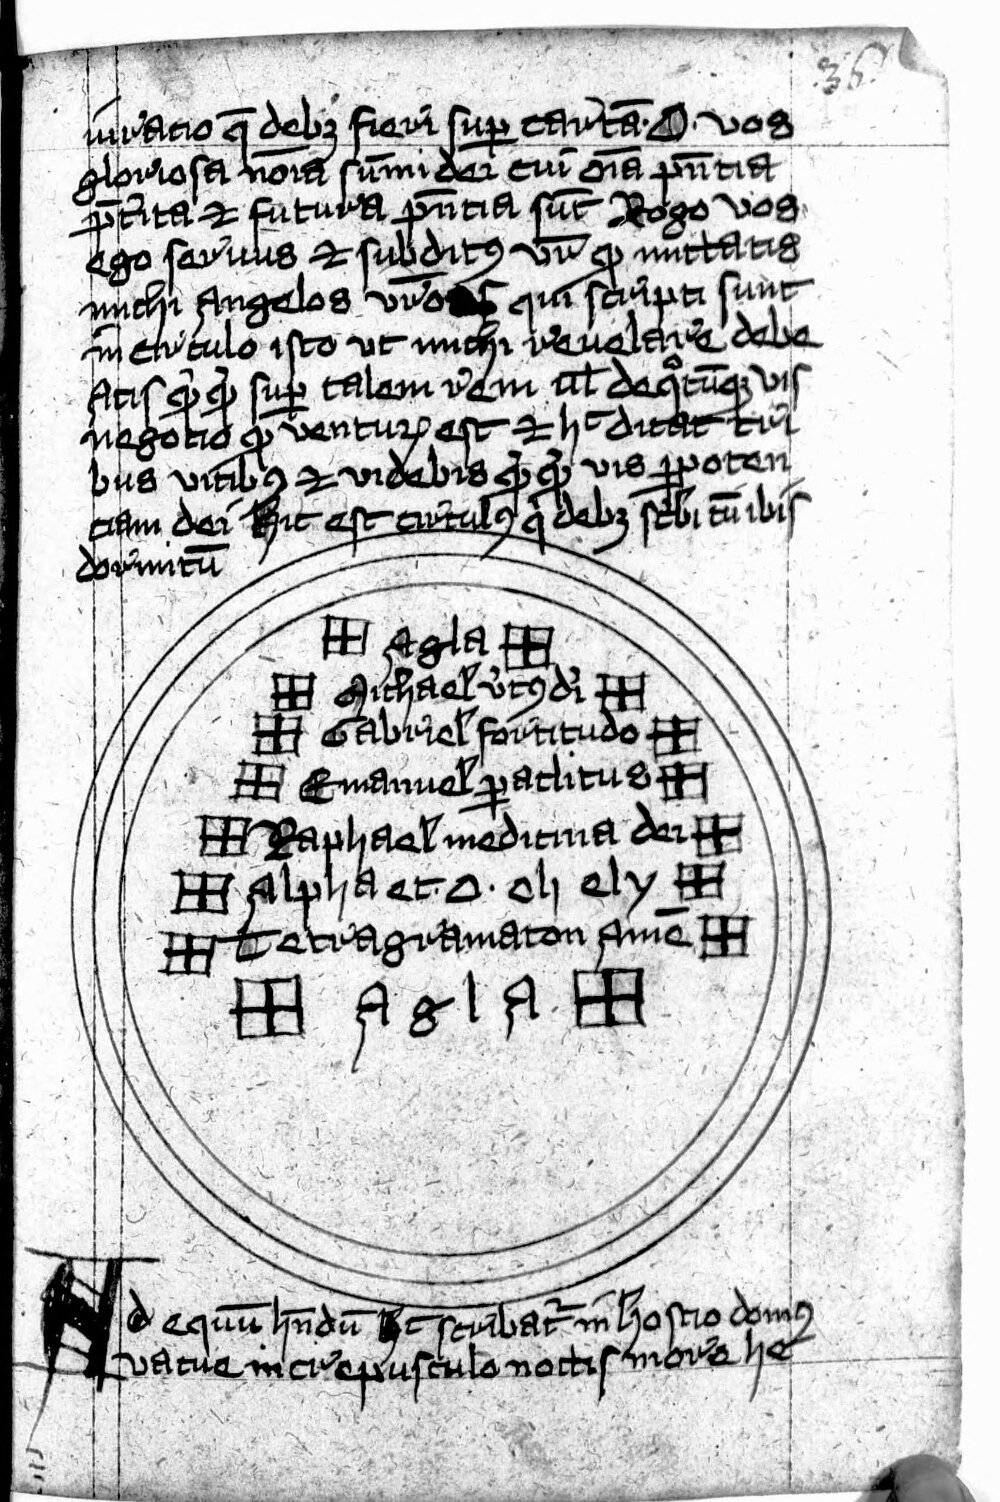 36
iuratio q̄ debꝫ fieri suꝑ cartā · O · vos
gloriosa noīa sūmi dei cui oīa pn̄tia
p̄t'ita ⁊ futura pn̄tia sūt Rogo vos
ego seruus ⁊ subditꝰ vr̄ ꝙ mittatis
michi Angelos vr̄os qui scripti sunt
in circulo isto ut michi reuelare debe
Atis suꝑ talem rem ul̄ de vis
negotio ꝙ venturꝝ est ⁊ h' dicat tri
bus vicibꝰ ⁊ videbis vis ꝑ poten
ciam dei hic est circulꝰ q' debꝫ sc'bi cū ibis
dormitū
Agla
Michael v'tꝰ di
Gabriel fortitudo
Emanuel ꝑaclitus
Raphael medicina dei
Alpha et · O · eli ely
Tetragramaton Amē
A g l A
Ad equū hn̄dū hc scribat' in hostio domꝰ
vacue in crepusculo noctis more he